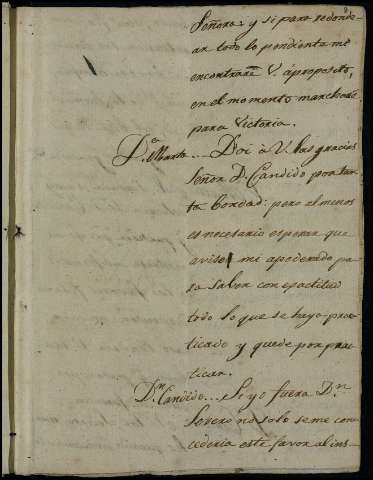 Señora, y si para redonde-
ar todo lo pendiente me
encontrare V. áproposito,
en el momento marcharé
para Victoria.
D.ª Marta... Doi á V. las gracias
Señor D. Candido por tan-
ta bondad: pero al menos
es necesario esperar que
avise mi apoderado pa-
ra saber con exactitud
todo lo que se haya prac-
ticado y quede por prac-
ticar.
D.n Candido... Si yo fuera D.n
Severo no solo se me con-
cederia este favor al ins-